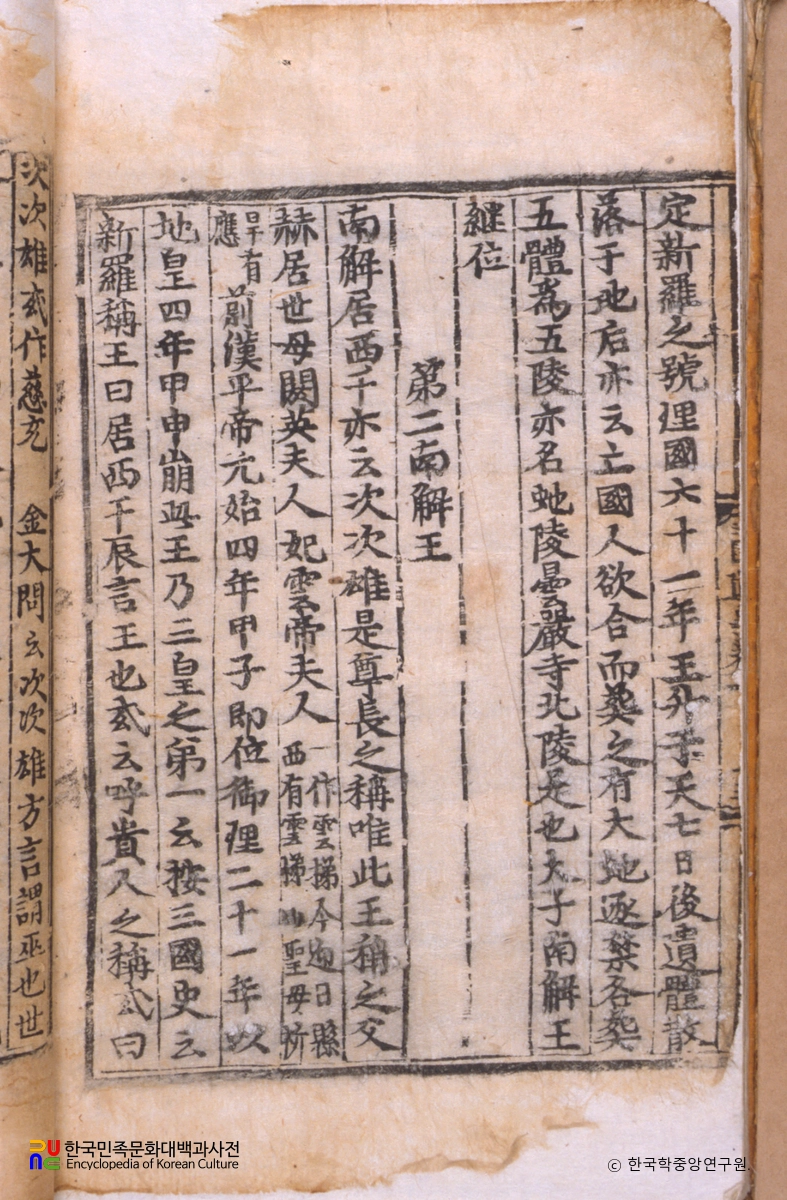 定新羅之號理國六十一年王升于天七日後遺體散
落于地后亦云亡國人欲合而葬之有大虵逐禁各葬
五體爲五陵亦名虵陵曇嚴寺北陵是也大子南解王
継位
第二南解王
南解居西干亦云次次雄是尊長之稱唯此王稱之父
赫居世母閼英夫人妃雲帝夫人一作雲梯今迎日縣
西有雲梯山聖母祈
旱有
應
前漢平帝元始四年甲子即位御理二十一年以
地皇四年甲申崩此王乃三皇之第一云按三國史云
新羅稱王曰居西干辰言王也或云呼貴人之稱或曰
次次雄或作慈充 金大問云次次雄方言謂巫也世
한국민족문화대백과사전
Encyclopedia of Korean Culture
© 한국학중앙연구원